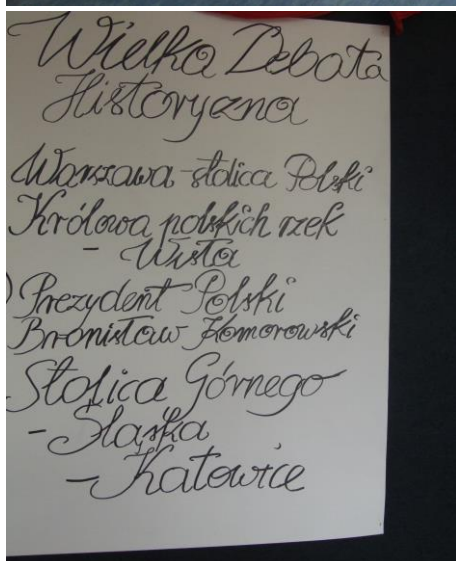 Wielka Debata
Historyczna
Warszawa - stolica Polski
Królowa polskich rzek
- Wisła
Prezydent Polski
Bronisław Komorowski
Stolica Górnego
- Śląska
- Katowice